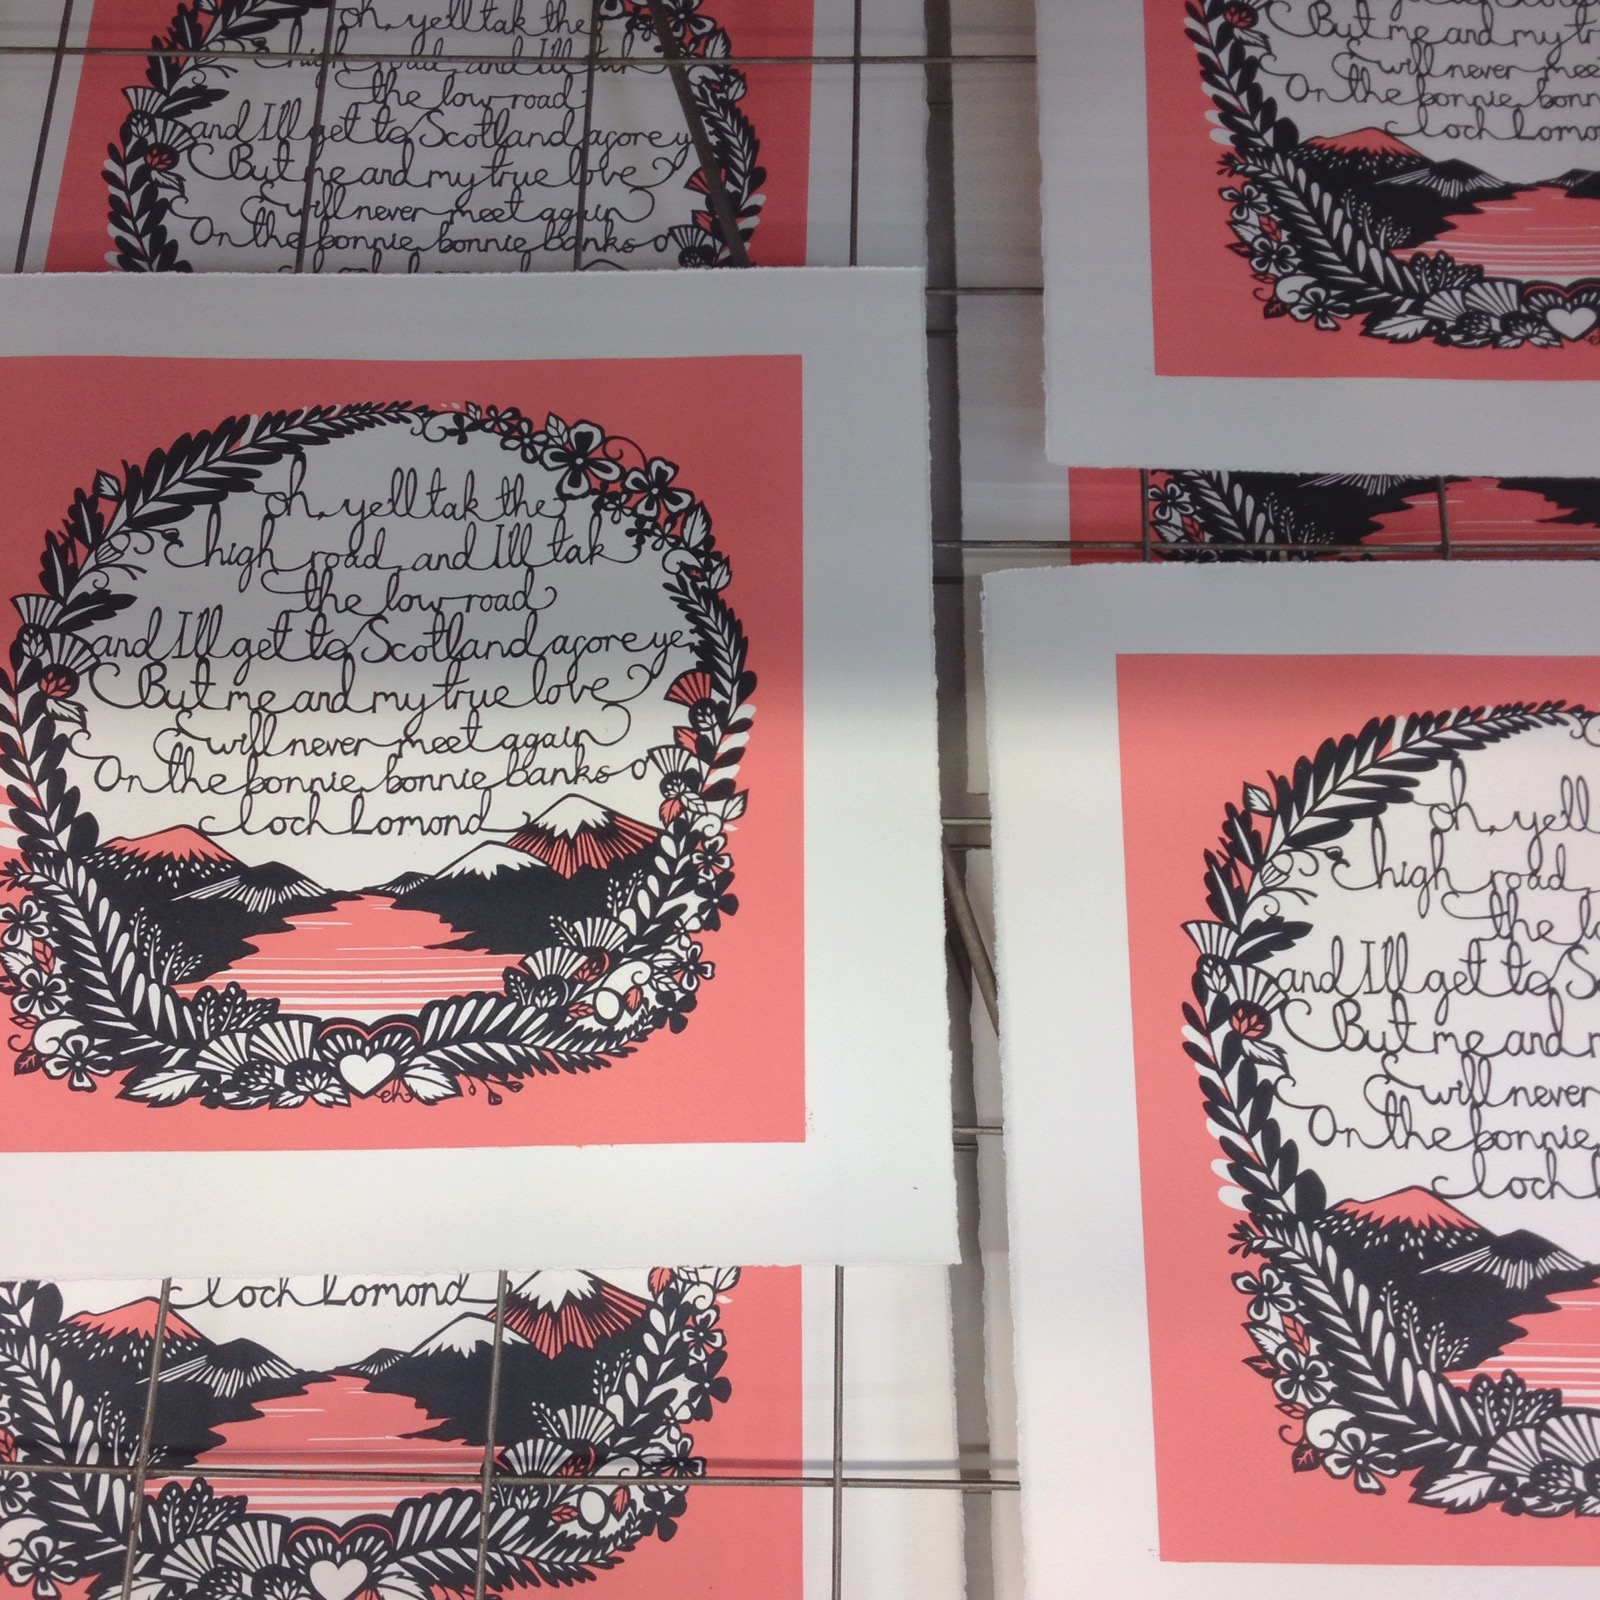 oh, ye'll tak the
high road, and I'll tak
the low road
and I'll get to Scotland afore ye
But me and my true love
will never meet again
On the bonnie, bonnie banks o'
Loch Lomond
eh
oh, ye'll tak the
high road, and I'll tak
the low road
and I'll get to Scotland afore ye
But me and my true love
will never meet again
On the bonnie, bonnie banks o'
But me and my tr
will never mee
On the bonnie, bonn
Loch Lomo
Loch Lomond
oh, ye'll
high road,
the lo
and I'll get to Sc
But me and m
will never
On the bonnie,
Loch L